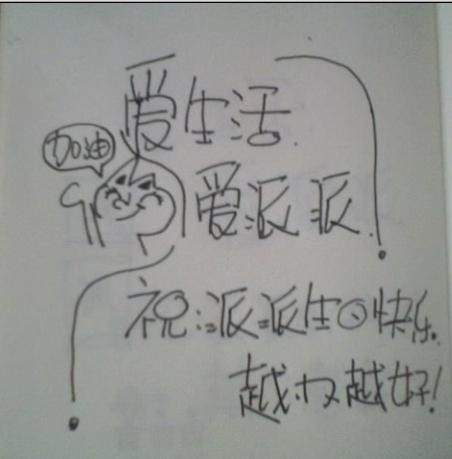 爱生活.
加油
爱派派.
祝:派派生日快乐.
越办越好!